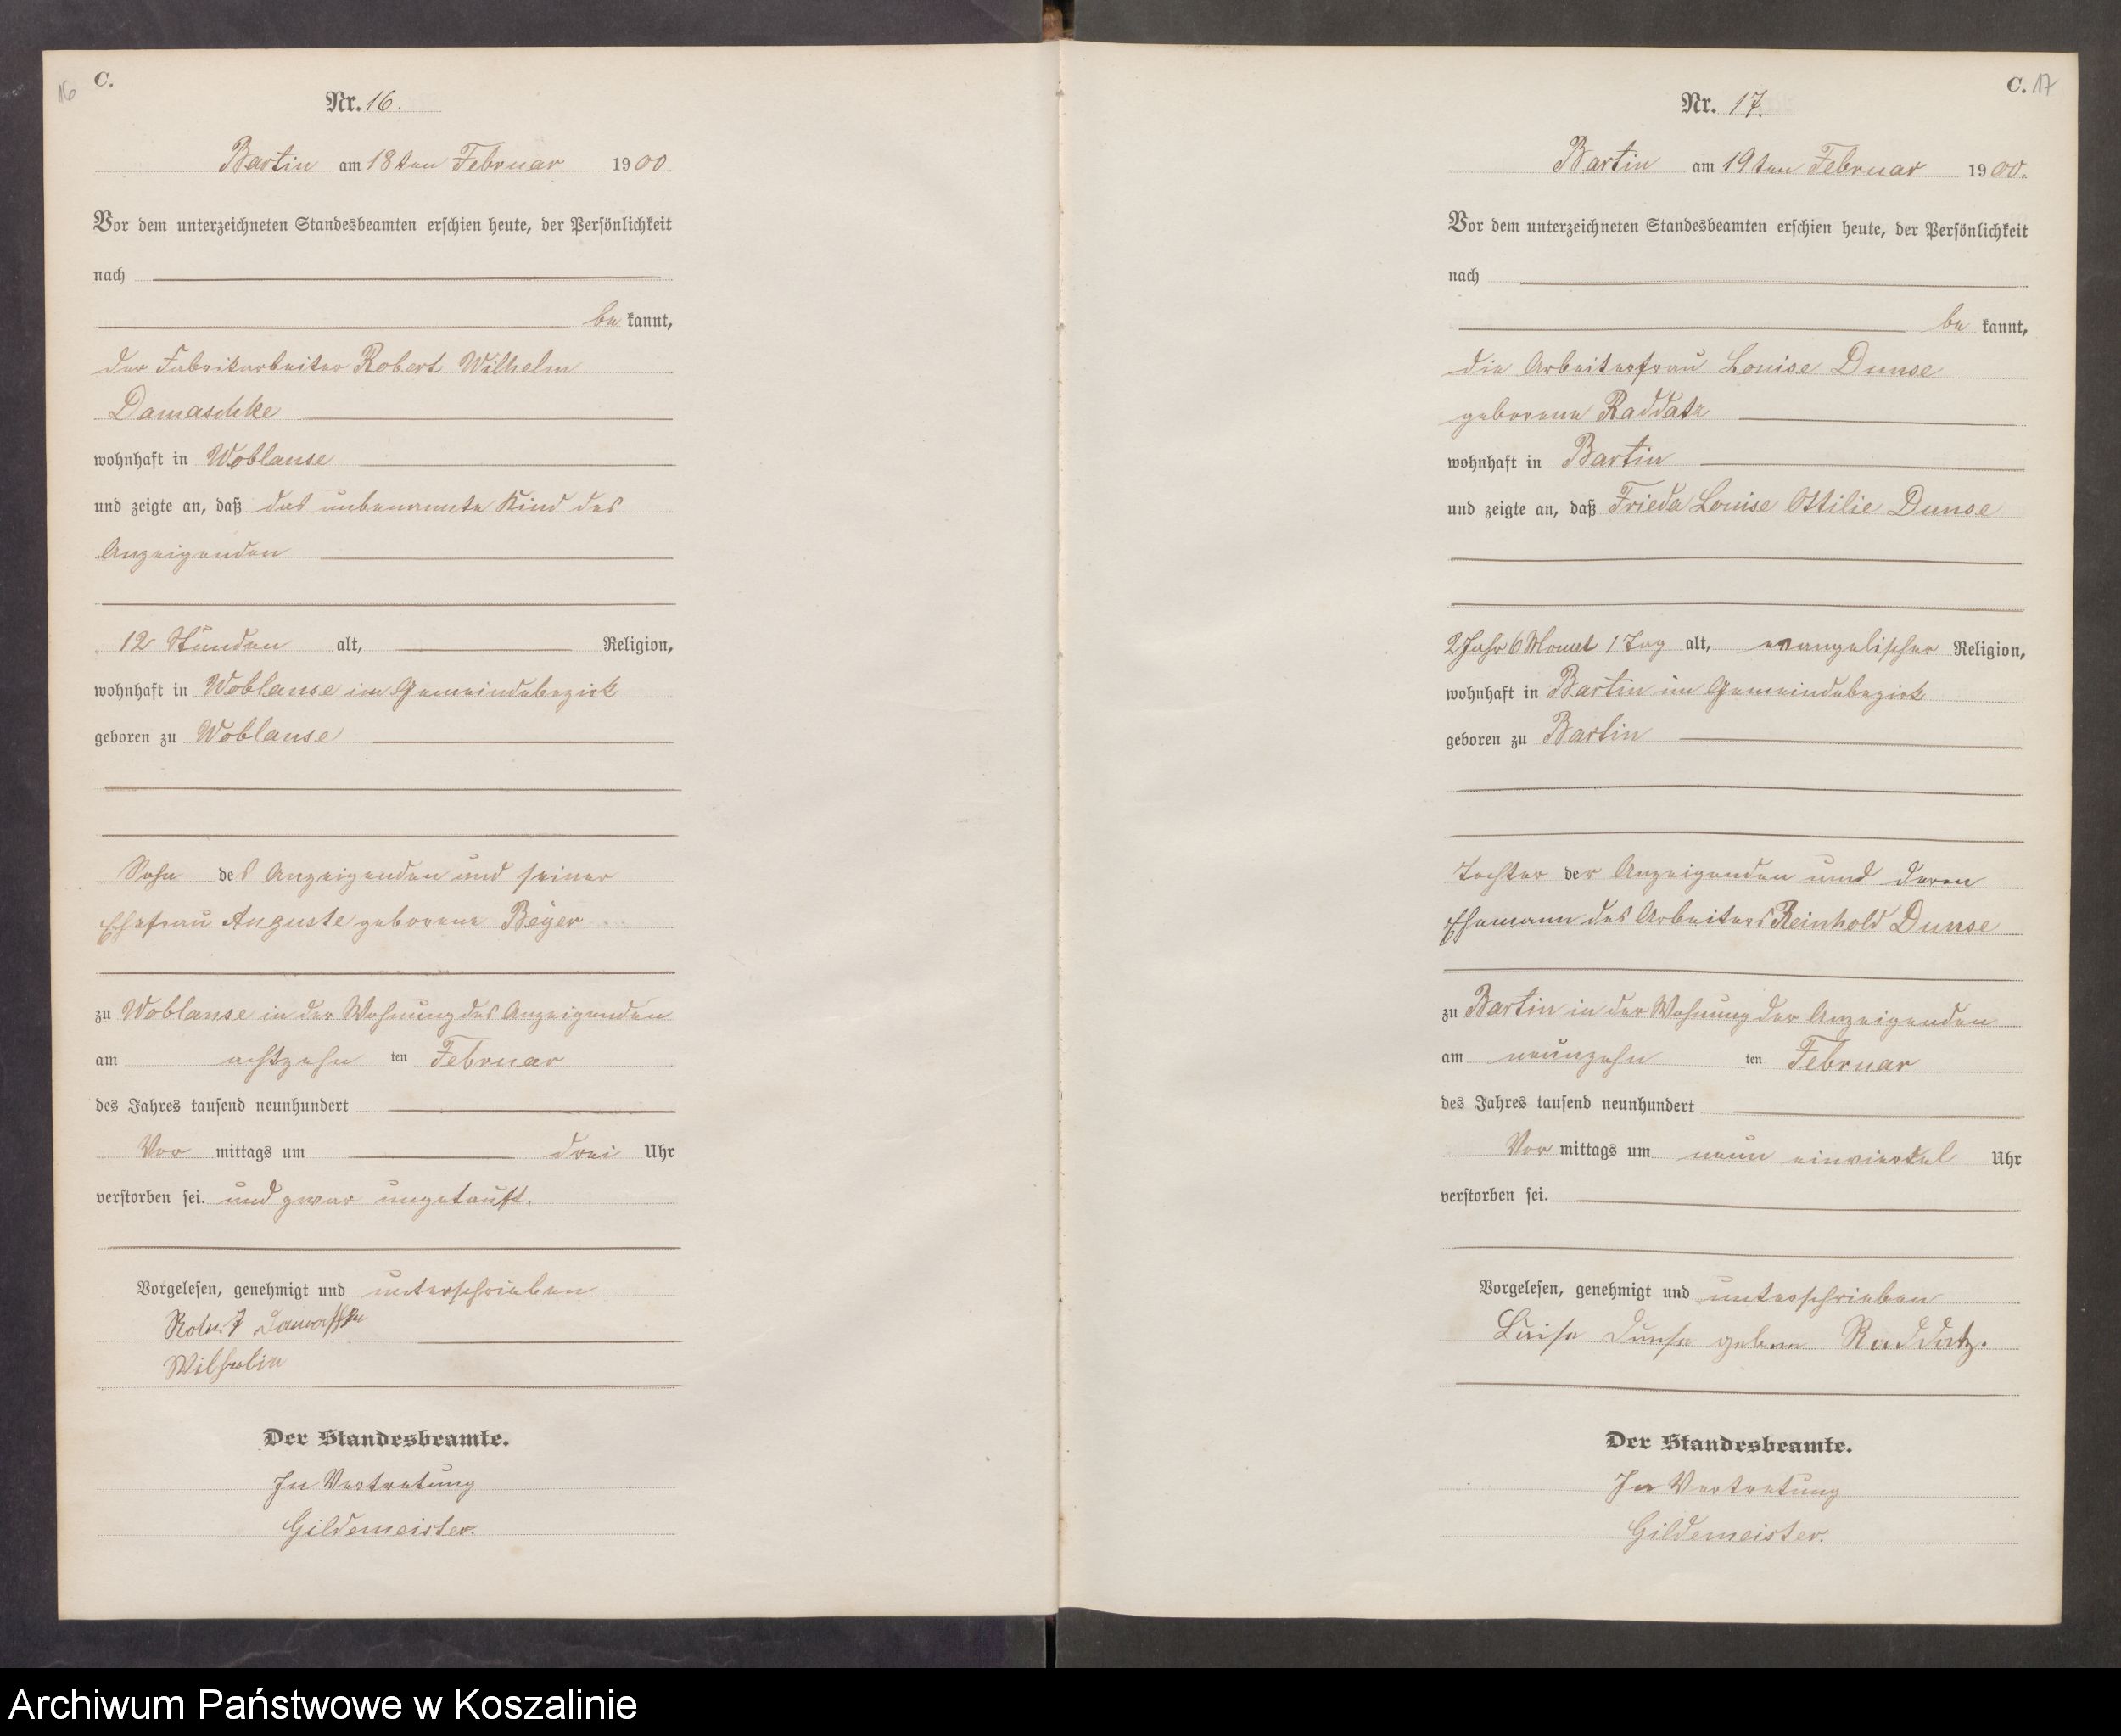 16
C.
Nr. 16.
Bartin am 18ten Februar 1900
Vor dem unterzeichneten Standesbeamten erschien heute, der Persönlichkeit
nach
be kannt,
der Fabrikarbeiter Robert Wilhelm
Damaschke
wohnhaft in Woblanse
und zeigte an, daß das unbenannte Kind des
Anzeigenden
12 Stunden alt, Religion,
wohnhaft in Woblanse im Gemeindebezirk
geboren zu Woblanse
Sohn des Anzeigenden und seiner
Ehefrau Auguste geborene Beyer
zu Woblanse in der Wohnung des Anzeigenden
am achtzehn ten Februar
des Jahres tausend neunhundert
Vor mittags um drei Uhr
verstorben sei. und zwar ungetauft.
Vorgelesen, genehmigt und unterschrieben
Robert Damaschke
Wilhelm
Der Standesbeamte.
In Vertretung
Gildemeister.
C. 17
Nr. 17.
Bartin am 19ten Februar 1900.
Vor dem unterzeichneten Standesbeamten erschien heute, der Persönlichkeit
nach
be kannt,
die Arbeiterfrau Louise Dunse
geborene Raddatz
wohnhaft in Bartin
und zeigte an, daß Frieda Louise Ottilie Dunse
2 Jahr 6 Monat 1 Tag alt, evangelischer Religion,
wohnhaft in Bartin im Gemeindebezirk
geboren zu Bartin
Tochter der Anzeigenden und deren
Ehemann des Arbeiters Reinhold Dunse
zu Bartin in der Wohnung der Anzeigenden
am neunzehn ten Februar
des Jahres tausend neunhundert
Vor mittags um neun einviertel Uhr
verstorben sei.
Vorgelesen, genehmigt und unterschrieben
Luise Dunse geborne Raddatz.
Der Standesbeamte.
In Vertretung
Gildemeister.
Archiwum Państwowe w Koszalinie